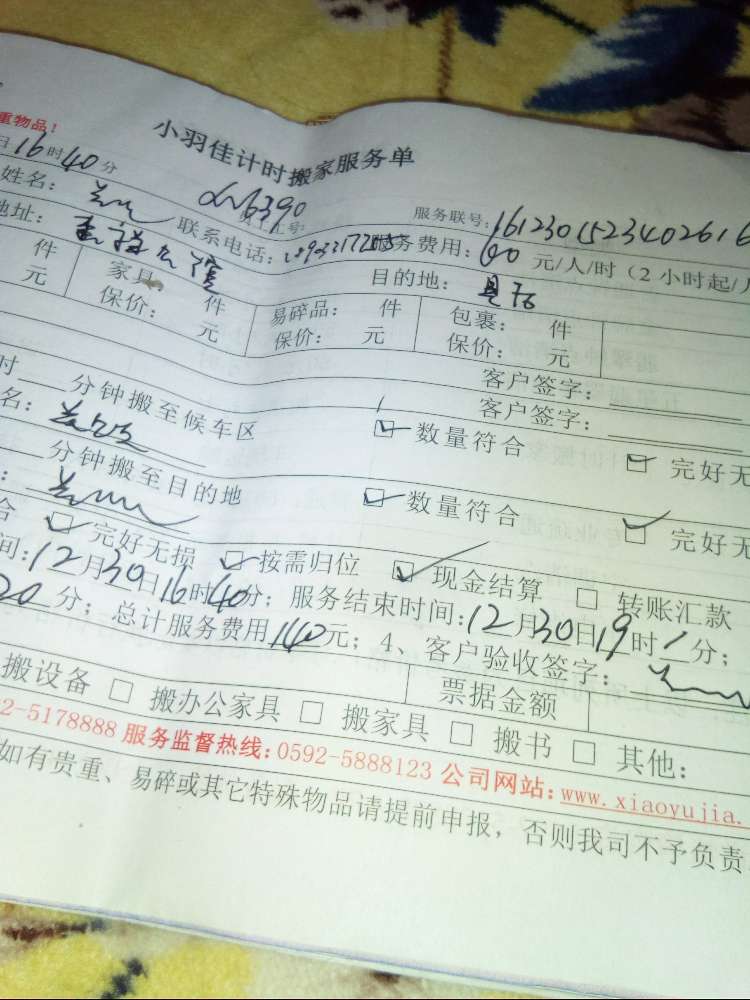 重物品！
小羽佳计时搬家服务单
日16时40分
服务联号：161230152340261 6
姓名： 联系电话： 服务费用：60元/人/时（2小时起/人
地址： 目的地：
件 家具： 件 易碎品： 件 包裹： 件
元 保价： 元 保价： 元 保价： 元
客户签字：
时 分钟搬至候车区 客户签字：
名： ☑数量符合 ☑完好无
分钟搬至目的地
： ☑数量符合 ☑完好无
合 ☑完好无损 ☑按需归位 ☑现金结算 □转账汇款
间：12月30日16时40分；服务结束时间：12月30日19时1分；
20分；总计服务费用140元；4、客户验收签字：
搬设备 □搬办公家具 □搬家具 □搬书 □其他：
票据金额
2-5178888 服务监督热线：0592-5888123 公司网站：www.xiaoyujia.
如有贵重、易碎或其它特殊物品请提前申报，否则我司不予负责